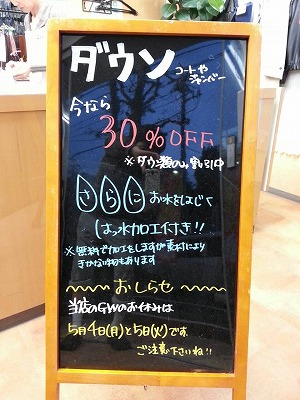 ダウン
コートや
ジャンバー
今なら
30%OFF
※ダウン類のみ割引中
さらに お水をはじく
はっ水加工付き!!
※無料で加工をしますが素材により
きかない物もあります
おしらせ
当店のGWのお休みは
5月4日(月)と5日(火)です
ご注意下さいね!!